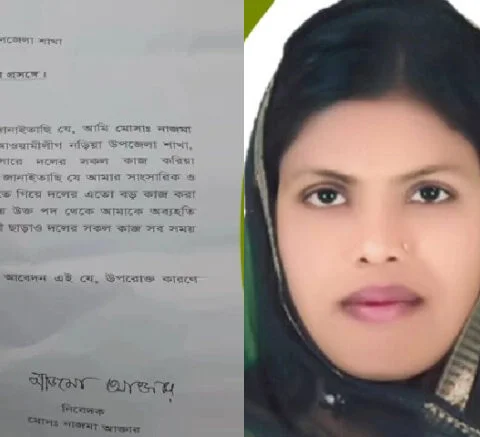 পজেলা শাখা
প্রসঙ্গে।
জানাইতাছি যে, আমি মোসাঃ নাজমা
আওয়ামীলীগ নড়িয়া উপজেলা শাখা,
সারে দলের সকল কাজ করিয়া
জানাইতাছি যে আমার সাংসারিক ও
তে গিয়ে দলের এতো বড় কাজ করা
য় উক্ত পদ থেকে আমাকে অব্যহতি
ী ছাড়াও দলের সকল কাজ সব সময়
আবেদন এই যে, উপরোক্ত কারণে
নাজমা আক্তার
নিবেদক
মোসাঃ নাজমা আক্তার